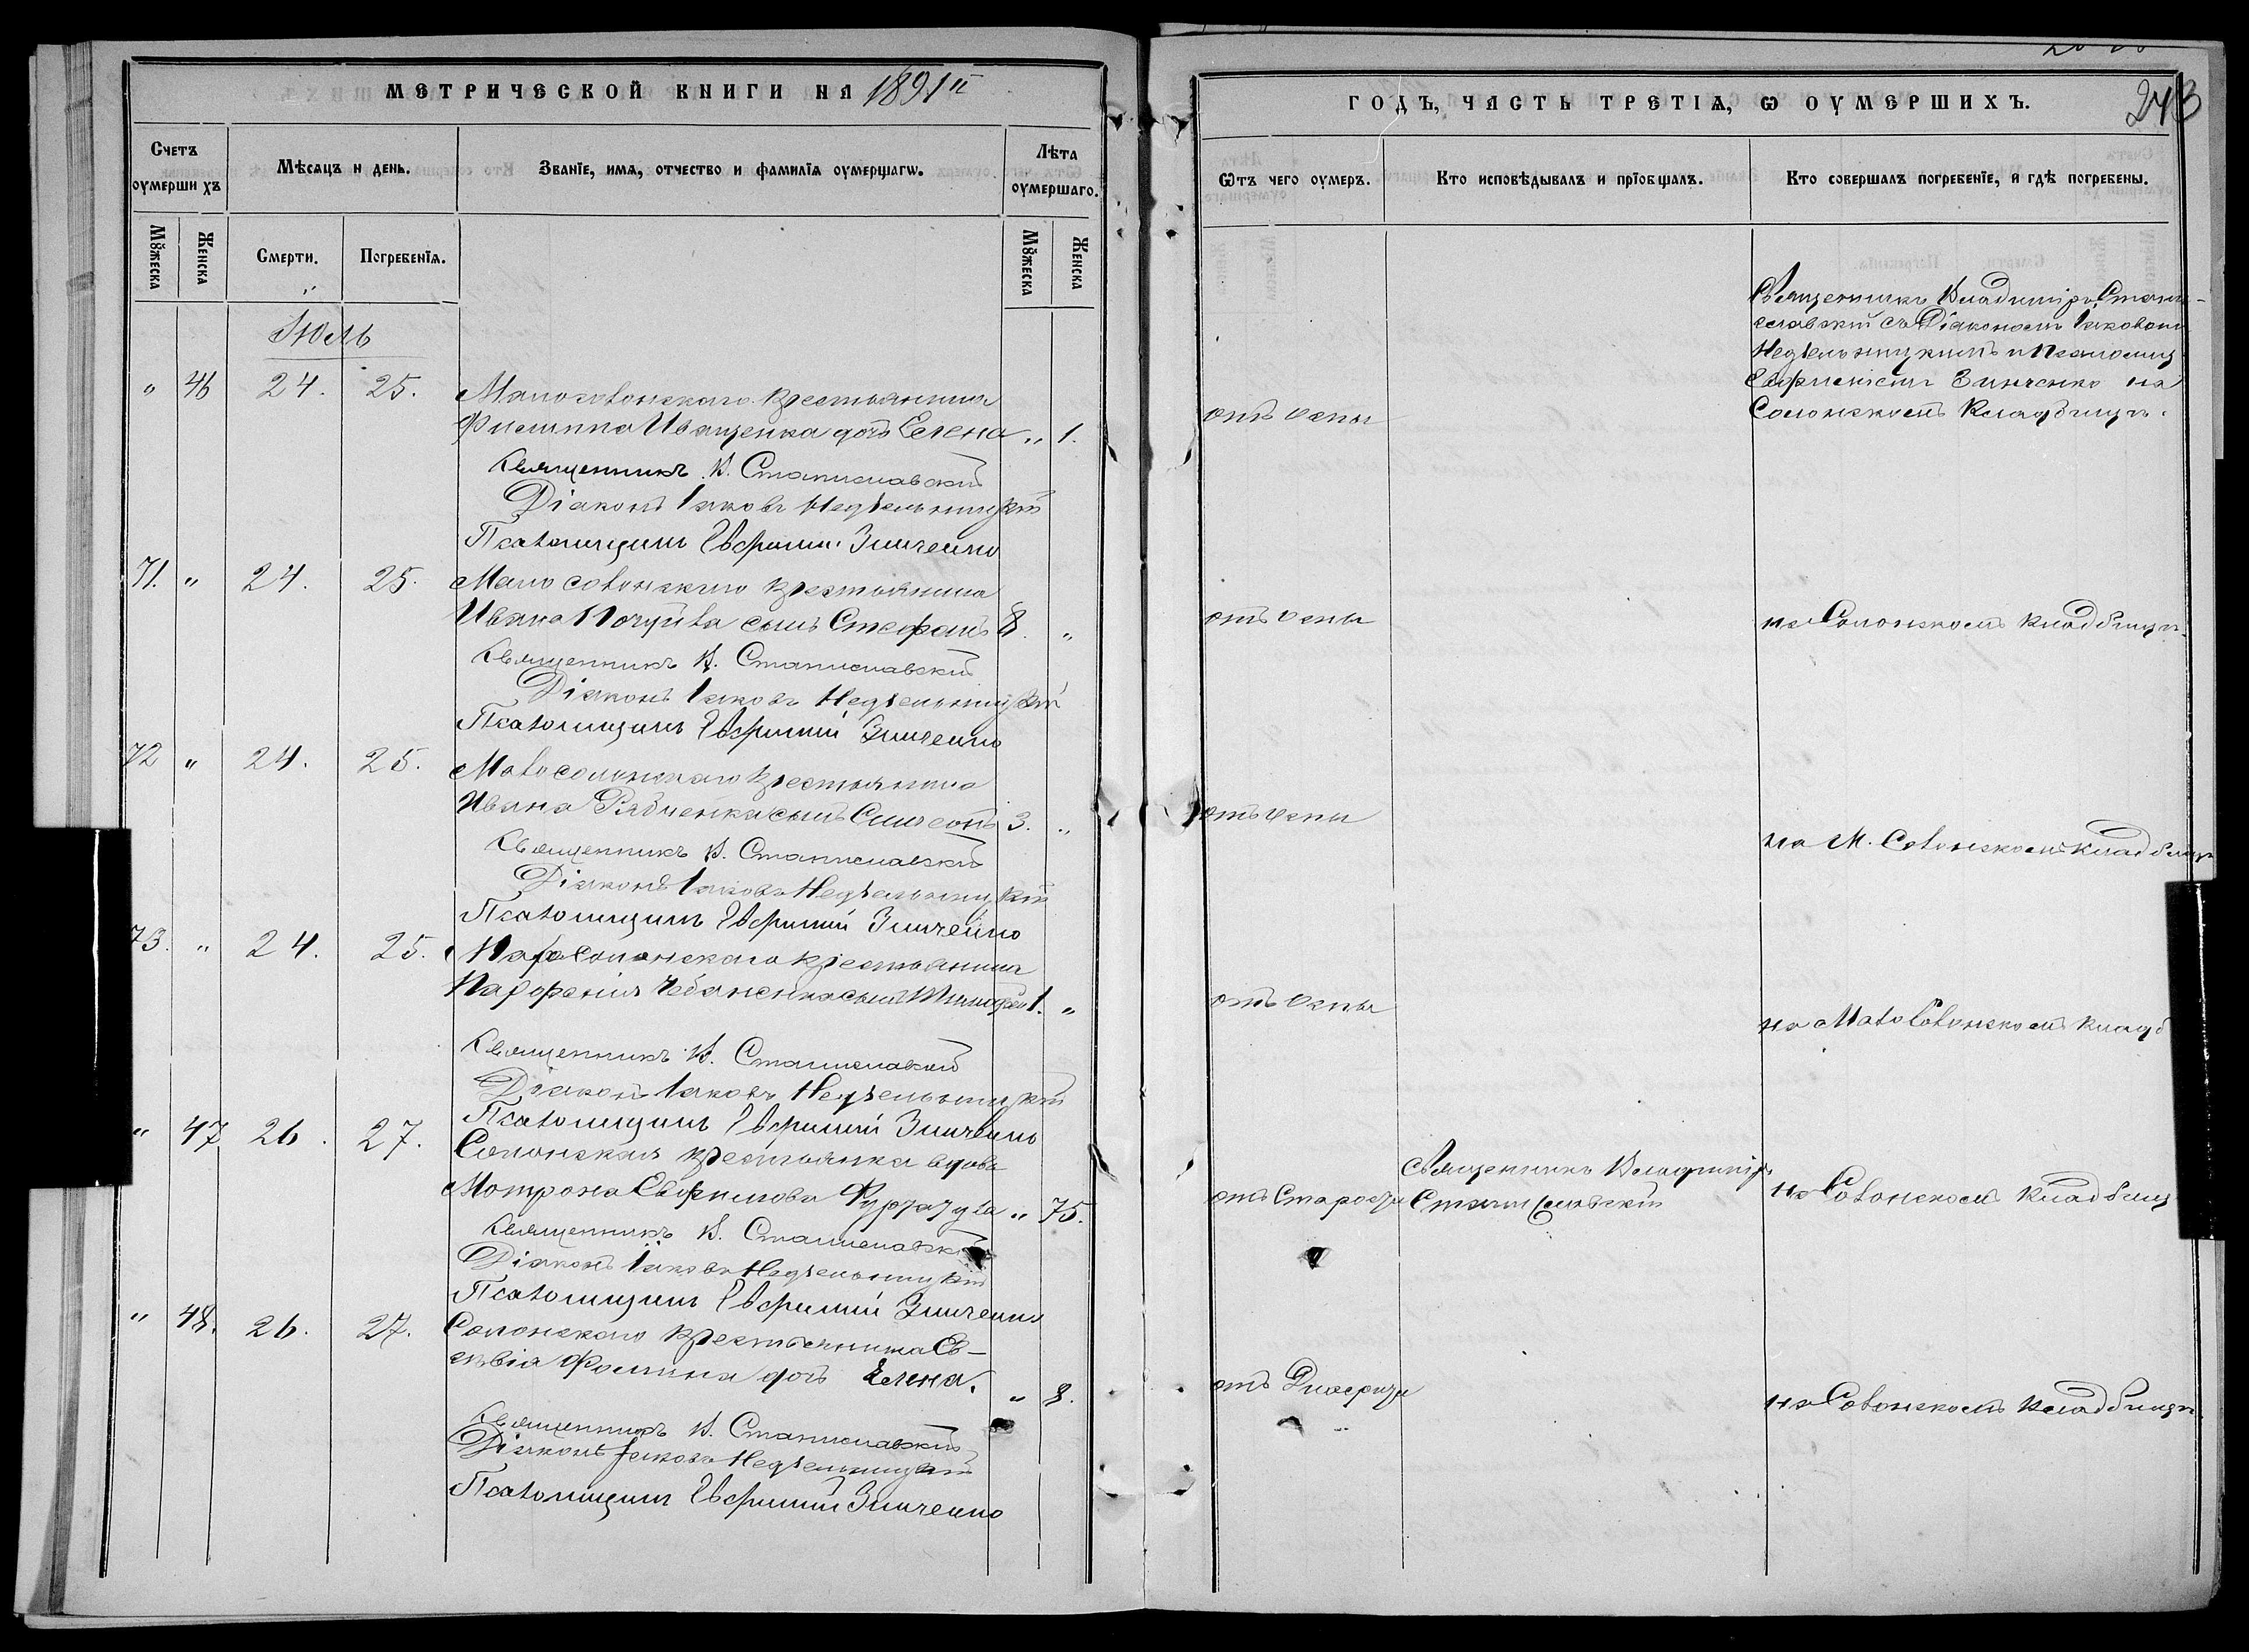 МЕТРИЧЕСКОЙ КНИГИ НА 1891й
Счетъ оумершихъ
Мѣсяцъ и день.
Званїе, имѧ, отчество и фамилїѧ оумершагѡ.
Лѣта оумершаго.
Мꙋжеска
Женска
Смерти.
Погребенїѧ.
Мꙋжеска
Женска
Іюль
" 46 24. 25. Малосолонскаго крестьянина
Филиппа Иващенка дочь Елена " 1.
Священникъ В. Станиславскій
Діаконъ Іаковъ Недѣльницкій
Псаломщикъ Евфимій Зинченко
71. " 24. 25. Малосолонскаго крестьянина
Ивана сынъ Стефанъ 8. "
Священникъ В. Станиславскій
Діаконъ Іаковъ Недѣльницкій
Псаломщикъ Евфимій Зинченко
72 " 24. 25. Малосолонскаго крестьянина
Ивана Рябченка сынъ Симеонъ 3. "
Священникъ В. Станиславскій
Діаконъ Іаковъ Недѣльницкій
Псаломщикъ Евфимій Зинченко
73. " 24. 25. Малосолонскаго крестьянина
Парфенія Чебаненка сынъ Тимофей 1. "
Священникъ В. Станиславскій
Діаконъ Іаковъ Недѣльницкій
Псаломщикъ Евфимій Зинченко
" 47 26. 27. Солонская крестьянка вдова
Мотрона " 75.
Священникъ В. Станиславскій
Діаконъ Іаковъ Недѣльницкій
Псаломщикъ Евфимій Зинченко
" 48. 26. 27. Солонскаго крестьянина Ев-
Фомина дочь Елена. " 8.
Священникъ В. Станиславскій
Діаконъ Іаковъ Недѣльницкій
Псаломщикъ Евфимій Зинченко
ГОДЪ, ЧАСТЬ ТРЕТІѦ, Ѡ ОУМЕРШИХЪ.
243
Ѿтъ чего оумеръ.
Кто исповѣдывалъ и прїобщалъ.
Кто совершалъ погребенїе, и гдѣ погребены.
Священникъ Владиміръ Стани-
славскій съ Діакономъ Іаковомъ
Недѣльницкимъ и Псаломщ.
Евфиміемъ Зинченко на
Солонскомъ кладбищѣ.
отъ оспы
отъ оспы
на Солонскомъ кладбищѣ.
отъ оспы
на М. Солонскомъ кладбищѣ
отъ оспы
на МалоСолонскомъ кладб
отъ Старости
Священникъ Владиміръ
Станиславскій
на Солонскомъ кладбищ
отъ
на Солонскомъ кладбищѣ.